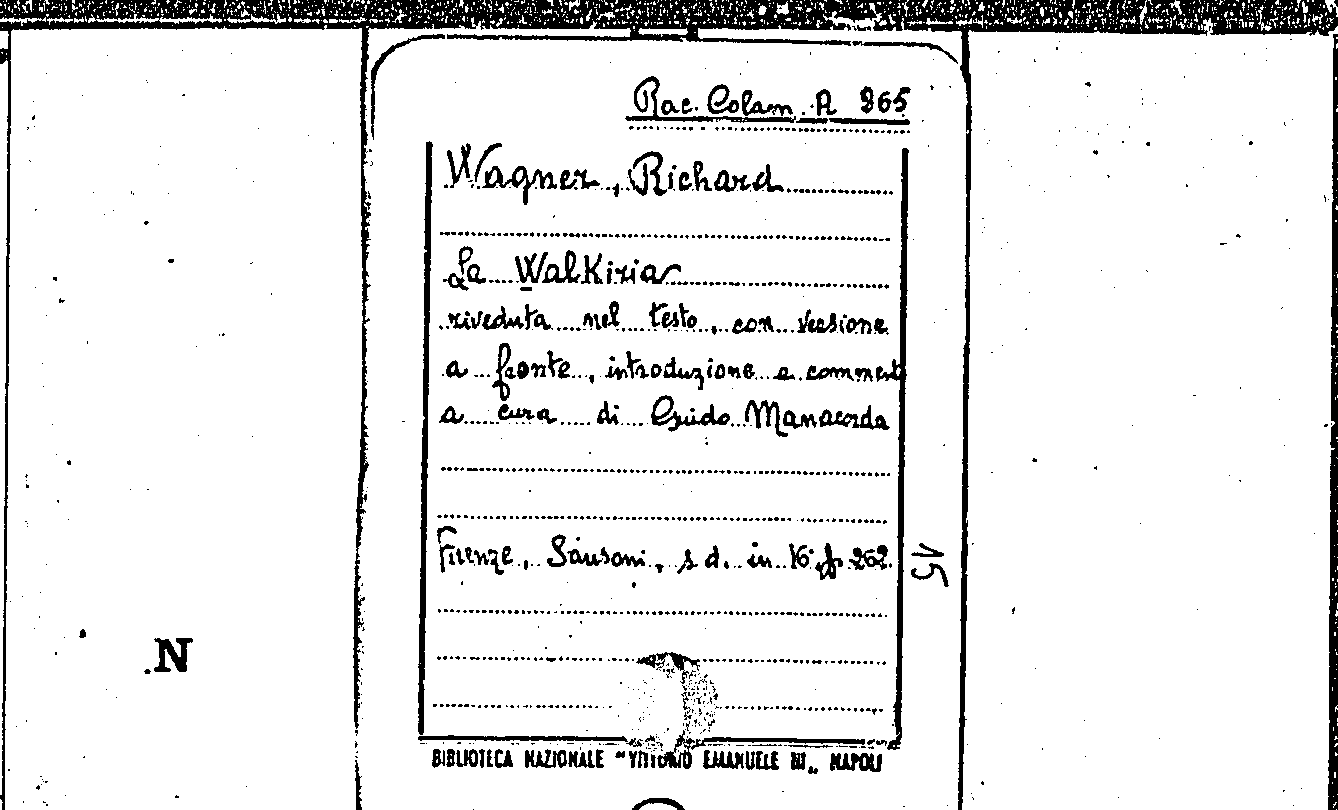 Rac. Colam. A 965
Wagner, Richard
La Walkiria
riveduta nel testo, con versione
a fronte, introduzione e comment
a cura di Guido Manacorda
Firenze, Sansoni, s. d. in 16° pp. 262.
15
N
BIBLIOTECA NAZIONALE "VITTORIO EMANUELE III„ NAPOLI